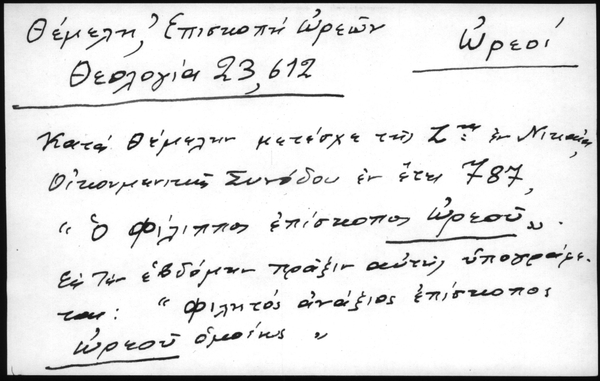 Θέμελη, Ἐπισκοπή Ὠρεῶν
Ὠρεοί
Θεολογία 23, 612
Κατά Θέμελην μετέσχε τῆς Ζης ἐν Νικαίᾳ
Οἰκουμενικῆς Συνόδου ἐν ἔτει 787,
" Ὁ Φίλιππος ἐπίσκοπος Ὠρεοῦ ".
Εἰς τήν ἑβδόμην πρᾶξιν αὐτῆς ὑπογράφε-
ται: " Φιλητός ἀνάξιος ἐπίσκοπος
Ὠρεοῦ ὁμοίως "